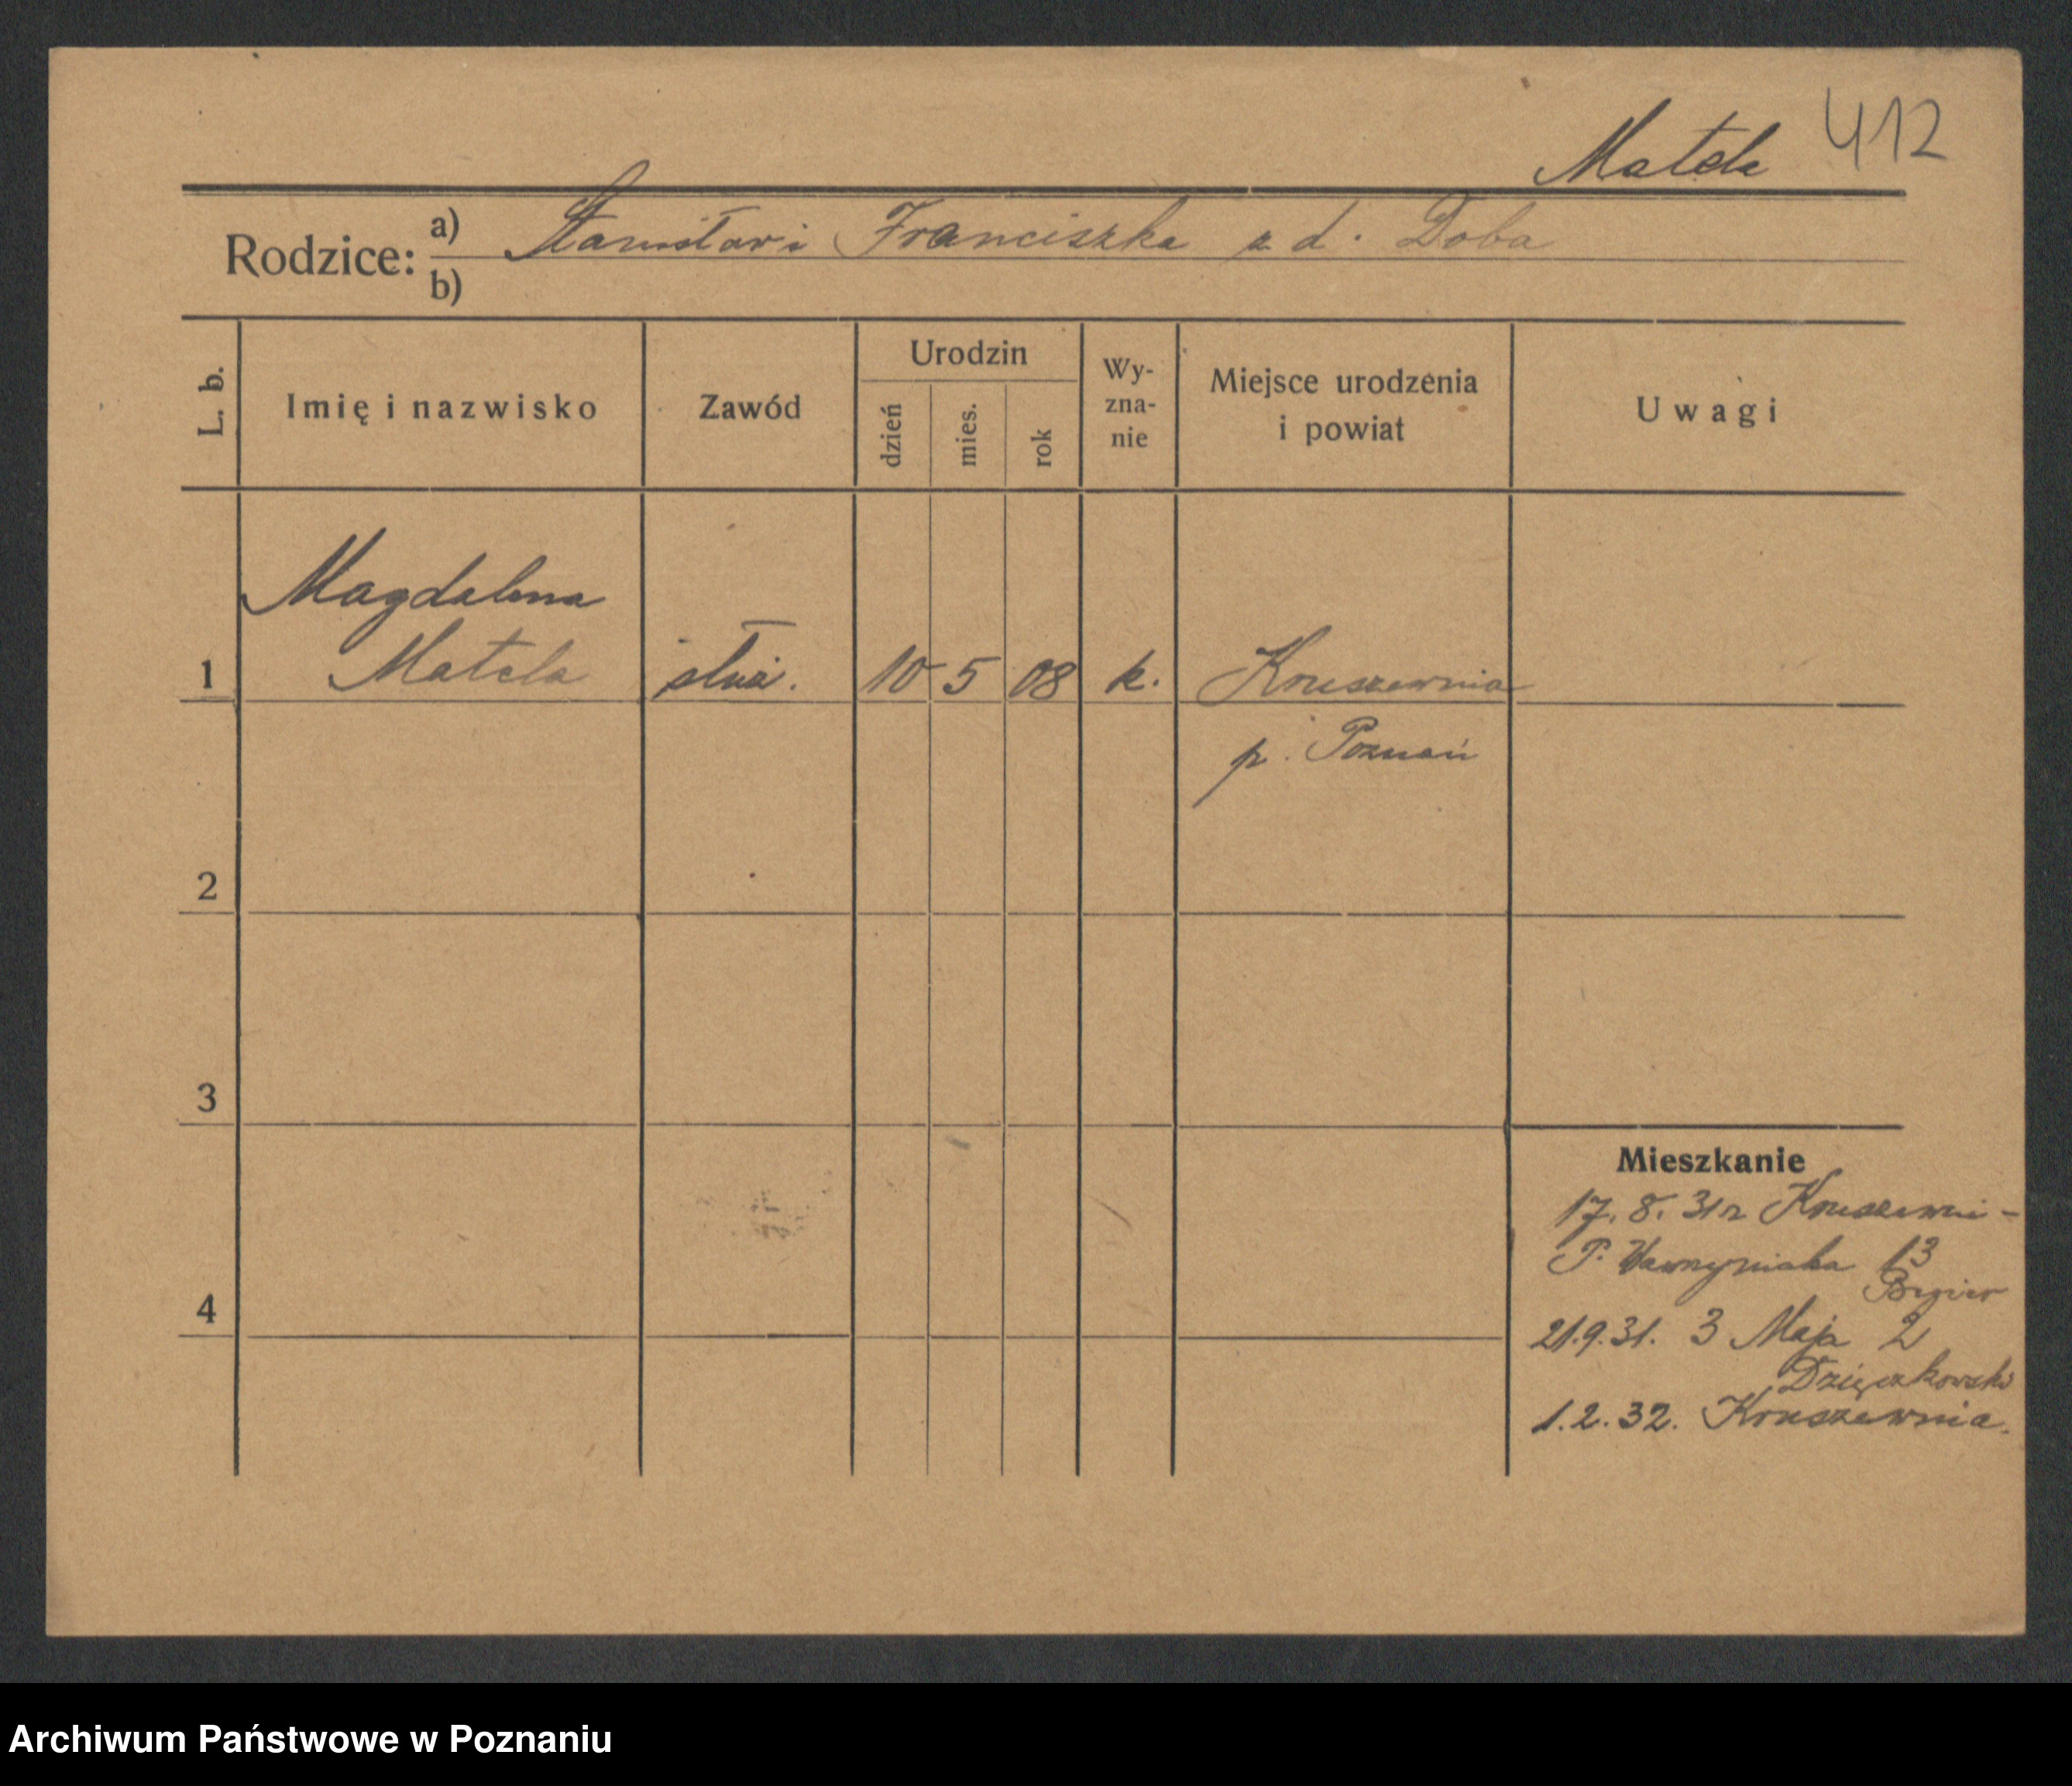 412
Matela
Rodzice: a) Stanisław i Franciszka z d. Doba
b)
L. b.
Imię i nazwisko
Zawód
Urodzin
dzień
mies.
rok
Wy-
zna-
nie
Miejsce urodzenia
i powiat
Uwagi
Magdalena
1 Matela służ. 10 5 08 k. Kruszewnia
p. Poznań
2
3
Mieszkanie
17. 8. 31 r Kruszewni -
P. Wawrzyniaka 13
4
21.9.31. 3 Maja 2
1.2.32. Kruszewnia.
Archiwum Państwowe w Poznaniu